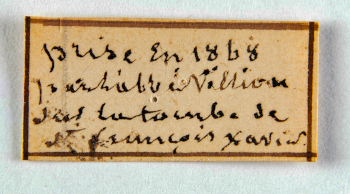 prise En 1868
par l'abbé Villion
sur la tombe de
St françois Xavier